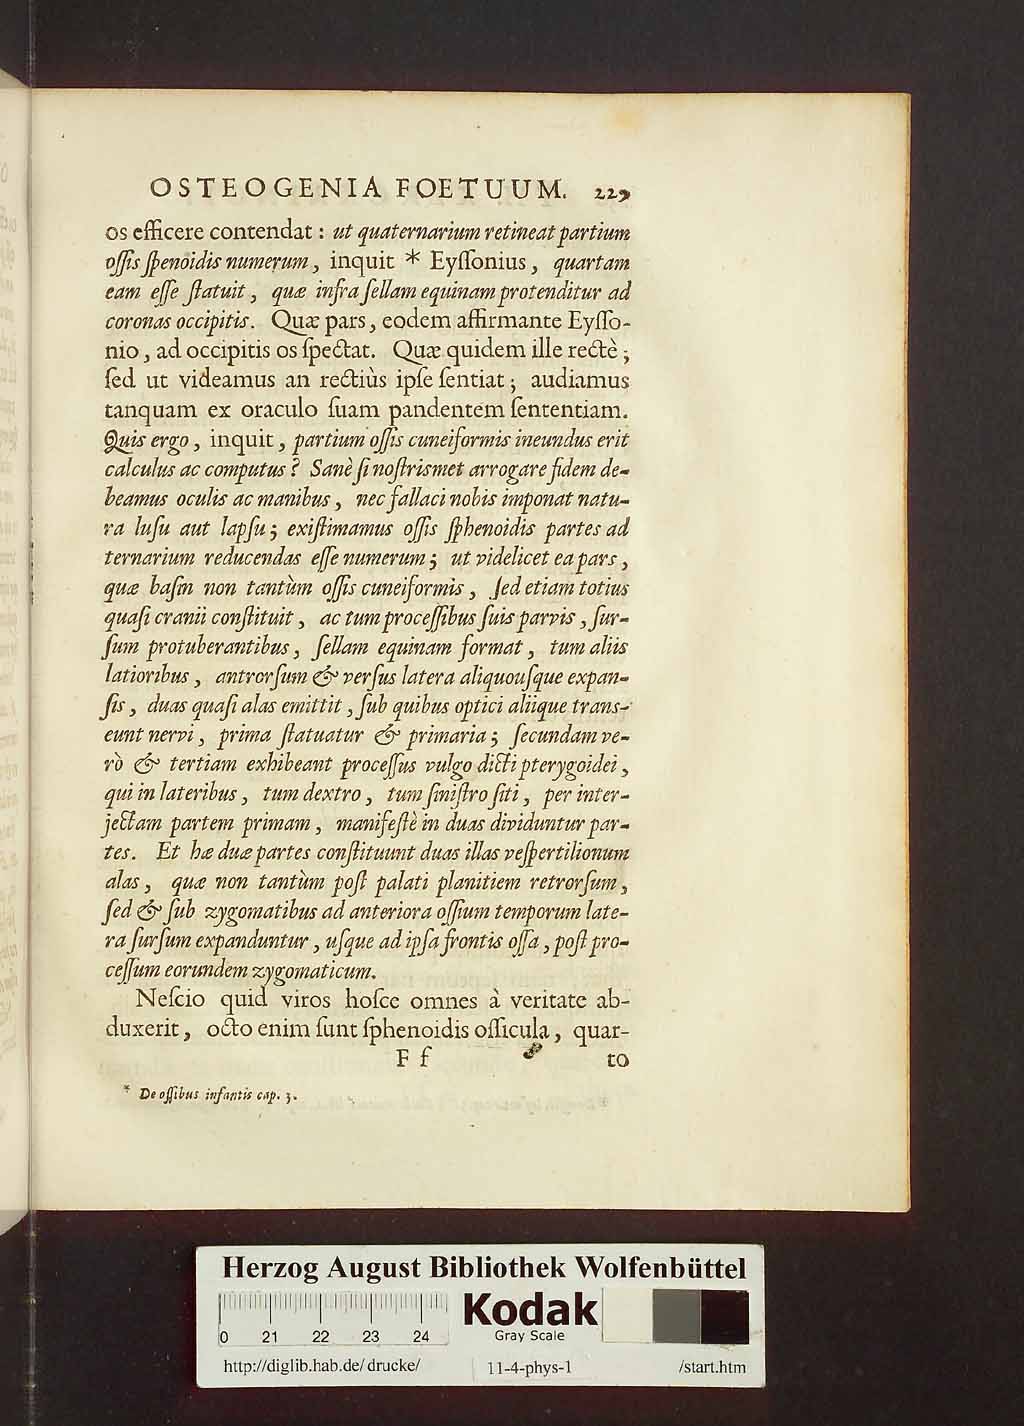 OSTEOGENIA FOETUUM. 225
os efficere contendat : ut quaternarium retineat partium
oſſis ſpenoidis numerum, inquit * Eyſſonius, quartam
eam eſſe ſtatuit, quæ infra ſellam equinam protenditur ad
coronas occipitis. Quæ pars, eodem affirmante Eyſſo-
nio, ad occipitis os ſpectat. Quæ quidem ille rectè;
ſed ut videamus an rectiùs ipſe ſentiat; audiamus
tanquam ex oraculo ſuam pandentem ſententiam.
Quis ergo, inquit, partium oſſis cuneiformis ineundus erit
calculus ac computus? Sanè ſi noſtrismet arrogare fidem de-
beamus oculis ac manibus, nec fallaci nobis imponat natu-
ra luſu aut lapſu; exiſtimamus oſſis ſphenoidis partes ad
ternarium reducendas eſſe numerum; ut videlicet ea pars,
quæ baſin non tantùm oſſis cuneiformis, ſed etiam totius
quaſi cranii conſtituit, ac tum proceſſibus ſuis parvis, ſur-
ſum protuberantibus, ſellam equinam format, tum aliis
latioribus, antrorſum & verſus latera aliquouſque expan-
ſis, duas quaſi alas emittit, ſub quibus optici aliique trans-
eunt nervi, prima ſtatuatur & primaria; ſecundam ve-
rò & tertiam exhibeant proceſſus vulgo dicti pterygoidei,
qui in lateribus, tum dextro, tum ſiniſtro ſiti, per inter-
jectam partem primam, manifeſtè in duas dividuntur par-
tes. Et hæ duæ partes conſtituunt duas illas veſpertilionum
alas, quæ non tantùm poſt palati planitiem retrorſum,
ſed & ſub zygomatibus ad anteriora oſſium temporum late-
ra ſurſum expanduntur, uſque ad ipſa frontis oſſa, poſt pro-
ceſſum eorundem zygomaticum.
Neſcio quid viros hoſce omnes à veritate ab-
duxerit, octo enim ſunt ſphenoidis oſſicula, quar-
F f to
* De oſſibus infantis cap. 3.
Herzog August Bibliothek Wolfenbüttel
Kodak
Gray Scale
0 21 22 23 24
http://diglib.hab.de/drucke/ 11-4-phys-1 /start.htm